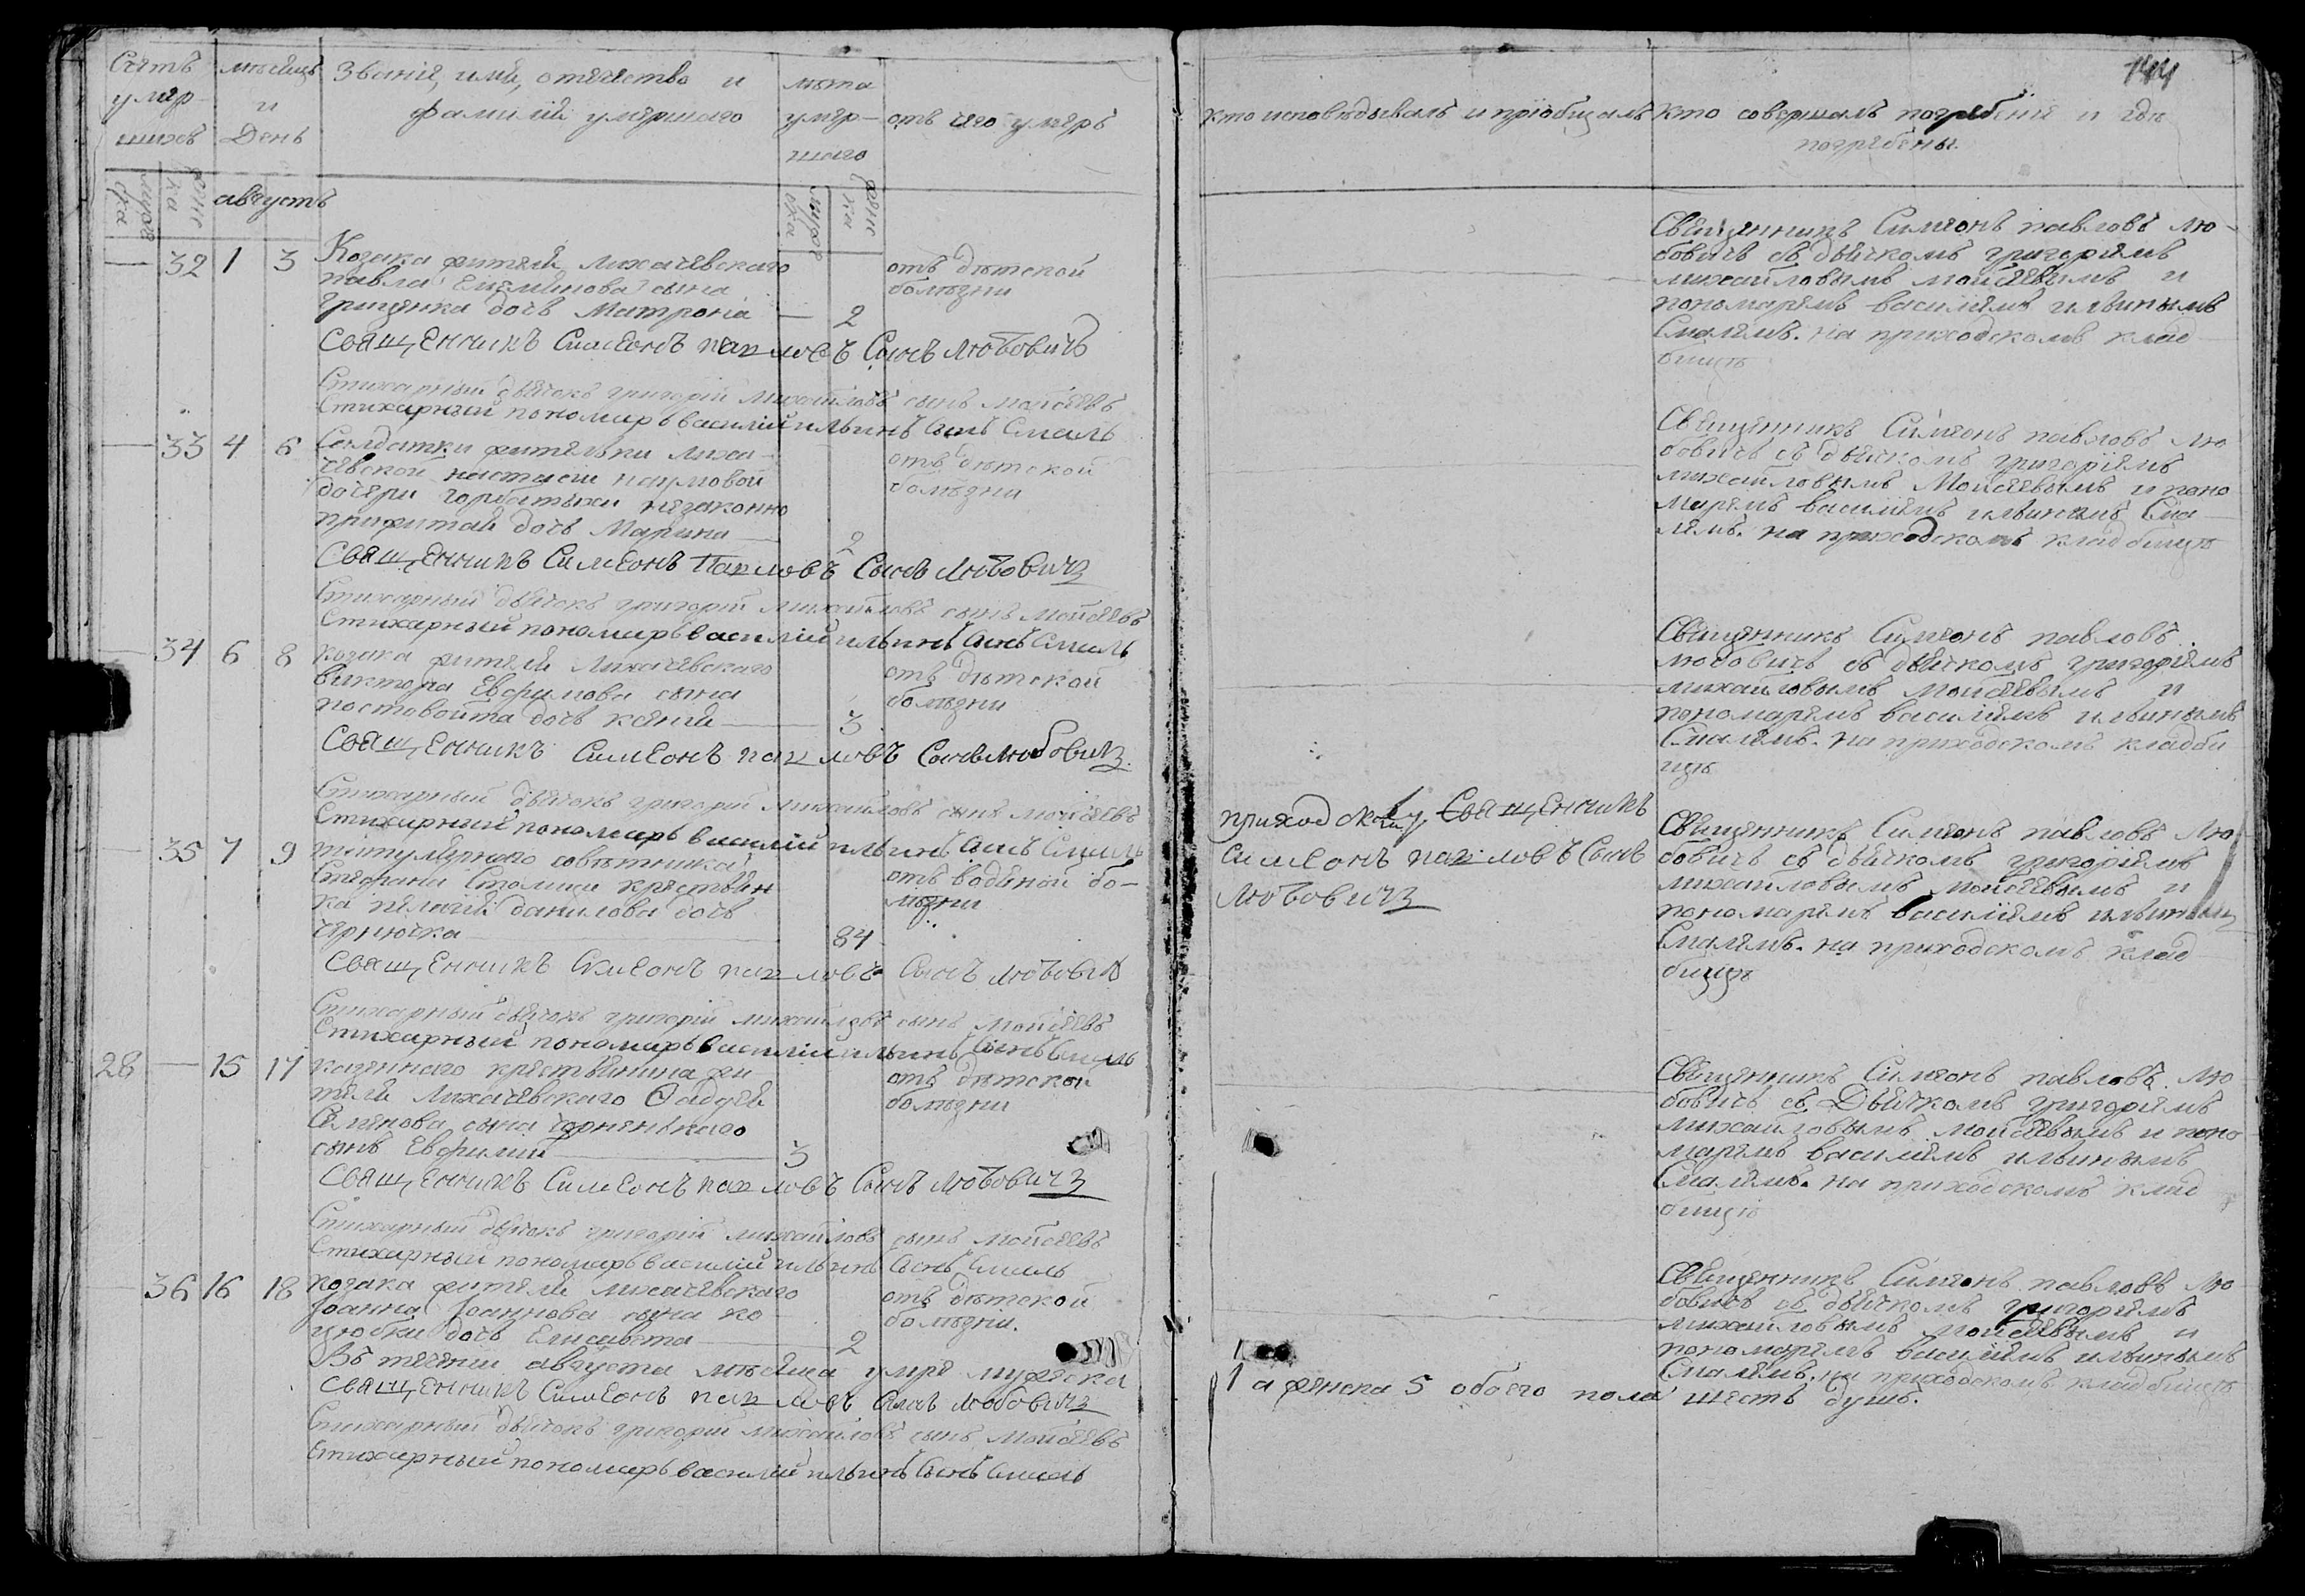 Счетъ умер шихъ
мѣсяцъ и День
Званія, имя, отечество и
фамилія умершаго
лѣта умер- шаго
отъ чего умеръ
кто исповѣдывалъ и пріобщалъ
кто совершалъ погребеніе и гдѣ
погребены.
144
августъ
32 1 3
Козака жителя лихачевскаго
павла сына
гриценка дочь Матрона — 2
отъ дѣтской
болѣзни
Священникъ Симеонъ павловъ Сынъ Любовичъ
Стихарный дьячокъ григорій михайловъ сынъ мойсеевъ
Стихарный пономаръ василій ильинъ Сынъ Смаль
Священникъ Симеонъ павловъ Лю-
бовичъ съ дьячкомъ григоріемъ
михайловымъ мойсеевымъ и
пономаремъ василіемъ ильинымъ
Смалемъ. на приходскомъ клад
бищѣ
33 4 6
Солдатки жительки лиха-
чевской настасіи наумовой
дочери горбатыхи незаконно
прижитая дочь Марина — 2
отъ дѣтской
болѣзни
Священникъ Симеонъ Павловъ Сынъ Любовичъ
Стихарный дьячокъ григорій михайловъ сынъ мойсеевъ
Стихарный пономаръ василій ильинъ Сынъ Смаль
Священникъ Симеонъ павловъ Лю
бовичъ съ дьячкомъ григоріемъ
михайловымъ Мойсеевымъ и поно
маремъ василіемъ ильинымъ Сма
лемъ. на приходскомъ кладбищѣ
34 6 8
козака жителя Лихачевскаго
виктора Евфимова сына
постовойта дочь ксенія — 3
отъ дѣтской
болѣзни
Священникъ Симеонъ павловъ Сынъ Любовичъ.
Стихарный дьячокъ григорій михайловъ сынъ мойсеевъ
Стихарный пономаръ василій ильинъ Сынъ Смаль
Священникъ Симеонъ павловъ
любовичъ съ дьячкомъ григоріемъ
михайловымъ мойсеевымъ и
пономаремъ василіемъ ильинымъ
Смалемъ. на приходскомъ кладби
щѣ
35 7 9
титулярнаго совѣтника
Стефана Столицы крестьян
ка пелагія данилова дочь
— 84
отъ водяной бо-
лѣзни
приходскій Священникъ
Симеонъ павловъ Сынъ
Любовичъ
Священникъ Симеонъ павловъ Сынъ Любовичъ
Стихарный дьячокъ григорій михайловъ сынъ Мойсеевъ
Стихарный пономаръ василій ильинъ Сынъ Смаль
Священникъ Симеонъ павловъ Лю
бовичъ съ дьячкомъ григоріемъ
михайловымъ мойсеевымъ и
пономаремъ василіемъ ильинымъ
Смалемъ. на приходскомъ клад
бищѣ
28 — 15 17
казеннаго крестьянина жи
теля Лихачевскаго Фадея
Семенова сына чорненькаго
сынъ Евфимій — 3
отъ дѣтской
болѣзни
Священникъ Симеонъ павловъ Сынъ Любовичъ
Стихарный дьячокъ григорій михайловъ сынъ мойсеевъ
Стихарный пономаръ василій ильинъ Сынъ Смаль
Священникъ Симеонъ павловъ Лю
бовичъ съ Дьячкомъ григоріемъ
михайловымъ мойсеевымъ и поно
маремъ василіемъ ильинымъ
Смалемъ. на приходскомъ клад
бищѣ
36 16 18
козака жителя лихачевскаго
Іоанна Іоаннова сына ко
цюбки дочь Елисавета — 2
отъ дѣтской
болѣзни.
Священникъ Симеонъ павловъ Лю
бовичъ съ дьячкомъ григоріемъ
михайловымъ мойсеевымъ и
пономаремъ василіемъ ильинымъ
Смалемъ. на приходскомъ кладбищѣ
Въ теченіи августа мѣсяца умре мужеска
1 а женска 5 обоего пола шесть душъ.
Священникъ Симеонъ павловъ Сынъ Любовичъ
Стихарный дьячокъ григорій михайловъ сынъ Мойсеевъ
Стихарный пономаръ василій ильинъ Сынъ Смаль